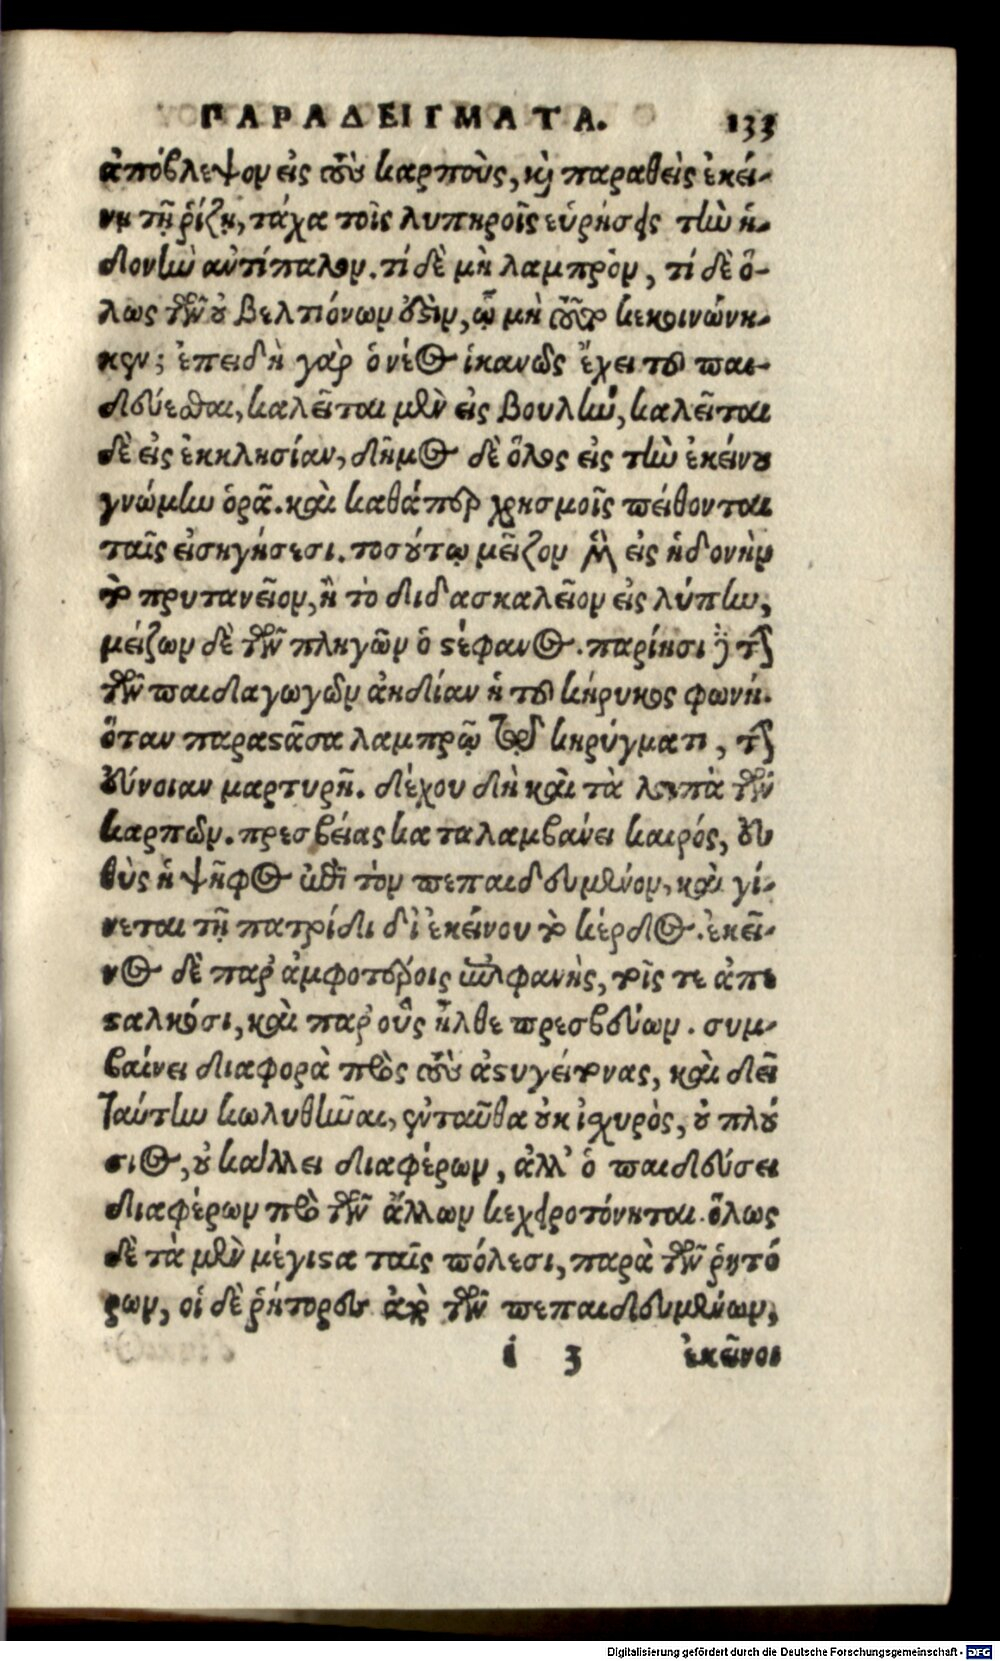 ΠΑΡΑΔΕΙΓΜΑΤΑ. 133
ἀπόβλεψον εἰς τοὺς καρποὺς, καὶ παραθεὶς ἐκεί-
νῃ τῇ ῥίζῃ, τάχα τοῖς λυπηροῖς εὑρήσεις τὴν ἡ-
δονὴν ἀντίπαλον. τί δὲ μὴ λαμπρὸν, τί δὲ ὅ-
λως τῶν οὐ βελτιόνων ἐστὶν, ᾧ μὴ τοῦτο κεκοινώνη-
κεν; ἐπειδὴ γὰρ ὁ νέος ἱκανῶς ἔχει τοῦ παι-
δεύεσθαι, καλεῖται μὲν εἰς βουλὴν, καλεῖται
δὲ εἰς ἐκκλησίαν, δῆμος δὲ ὅλος εἰς τὴν ἐκείνου
γνώμην ὁρᾷ. καὶ καθάπερ χρησμοῖς πείθονται
ταῖς εἰσηγήσεσι. τοσούτῳ μεῖζον εἰς ἡδονὴν
τὸ πρυτανεῖον, ἢ τὸ διδασκαλεῖον εἰς λύπην,
μείζων δὲ τῶν πληγῶν ὁ στέφανος. παρίησι δὲ τὴν
τῶν παιδαγωγῶν ἀηδίαν ἡ τοῦ κήρυκος φωνή.
ὅταν παραστᾶσα λαμπρῷ τῷ κηρύγματι, τὴν
εὔνοιαν μαρτυρῇ. δέχου δὴ καὶ τὰ λοιπὰ τῶν
καρπῶν. πρεσβείας καταλαμβάνει καιρός, εὐ
θὺς ἡ ψῆφος ἐπὶ τὸν πεπαιδευμένον, καὶ γί-
νεται τῇ πατρίδι δι' ἐκείνου τὸ κέρδος. ἐκεῖ-
νος δὲ παρ' ἀμφοτέροις περιφανὴς, τοῖς τε ἀπε
σταλκόσι, καὶ παρ' οὓς ἦλθε πρεσβεύων. συμ-
βαίνει διαφορὰ πρὸς τοὺς ἀστυγείτονας, καὶ δεῖ
ταύτην κωλυθῆναι, ἐνταῦθα οὐκ ἰσχυρὸς, οὐ πλού
σιος, οὐ κάλλει διαφέρων, ἀλλ' ὁ παιδεύσει
διαφέρων πρὸ τῶν ἄλλων κεχειροτόνηται. ὅλως
δὲ τὰ μὲν μέγιστα ταῖς πόλεσι, παρὰ τῶν ῥητό
ρων, οἱ δὲ ῥήτορες παρὰ τῶν πεπαιδευμένων,
i 3 ἐκεῖνοι
Digitalisierung gefördert durch die Deutsche Forschungsgemeinschaft - DFG